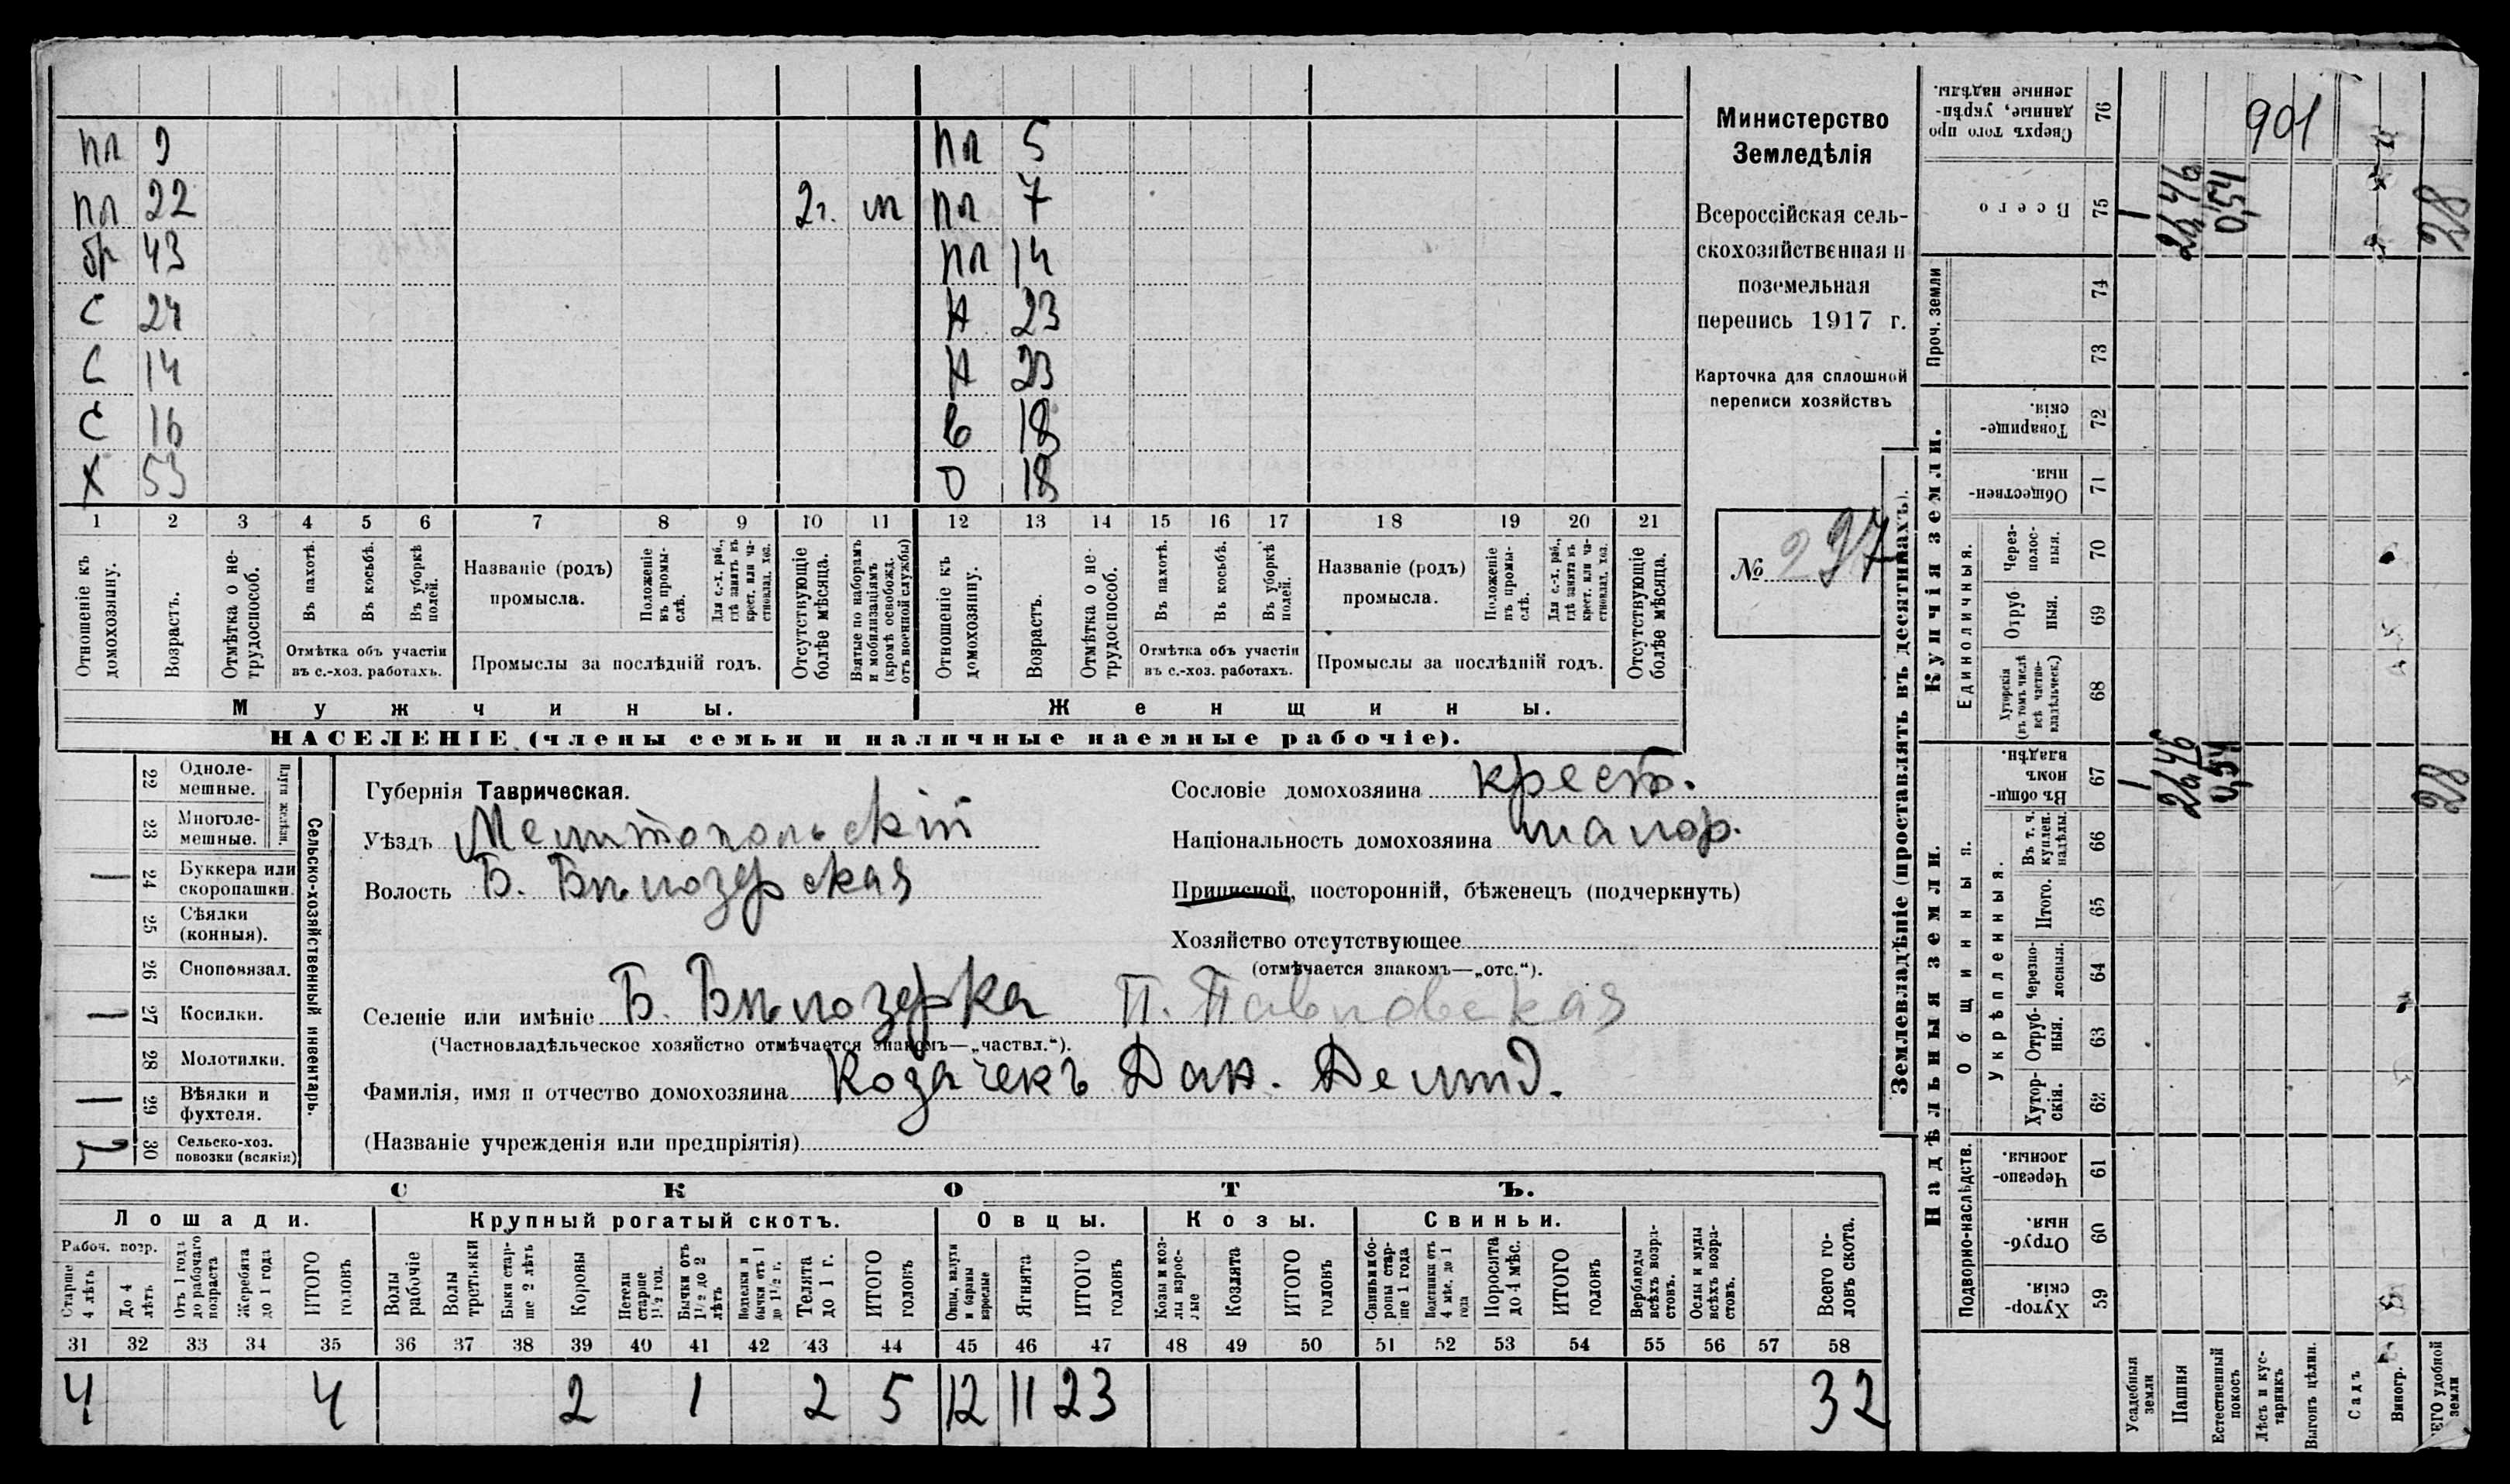 Министерство
Земледѣлія
Всероссійская сель-
скохозяйственная и
поземельная
перепись 1917 г.
Карточка для сплошной
переписи хозяйствъ
№ 297
пл 9
пл 22 2 г. м
бр 43
С 24
С 14
С 16
Х 53
пл 5
пл 7
пл 14
Н 23
Н 23
18
18
1 2 3 4 5 6 7 8 9 10 11 12 13 14 15 16 17 18 19 20 21
Отношеніе къ домохозяину.
Возрастъ.
Отмѣтка о не-трудоспособ.
Въ пахотѣ.
Въ косьбѣ.
Въ уборкѣ полей.
Отмѣтка объ участіи
въ с.-хоз. работахъ.
Названіе (родъ)
промысла.
Положеніе въ промы-слѣ.
Для с.-х. раб., гдѣ занятъ въ крест. или ча-стновлад. хоз.
Промыслы за послѣдній годъ.
Отсутствующіе болѣе мѣсяца.
Взятые по наборамъ и мобилизаціямъ (кромѣ освобожд. отъ военной службы)
Отношеніе къ домохозяину.
Возрастъ.
Отмѣтка о не-трудоспособ.
Въ пахотѣ.
Въ косьбѣ.
Въ уборкѣ полей.
Отмѣтка объ участіи
въ с.-хоз. работахъ.
Названіе (родъ)
промысла.
Положеніе въ промы-слѣ.
Для с.-х. раб., гдѣ занята въ крест. или ча-стновлад. хоз.
Промыслы за послѣдній годъ.
Отсутствующіе болѣе мѣсяца.
Мужчины.
Женщины.
НАСЕЛЕНІЕ (члены семьи и наличные наемные рабочіе).
Сельско-хозяйственный инвентарь.
Плуги желѣзн.
22 Одноле-мешные.
23 Многоле-мешные.
24 Буккера или скоропашки. 1
25 Сѣялки (конныя).
26 Сноповязал.
27 Косилки. 1
28 Молотилки.
29 Вѣялки и фухтеля. 1
30 Сельско-хоз. повозки (всякія)
Губернія Таврическая.
Уѣздъ Мелитопольскій
Волость Б. Бѣлозерская
Сословіе домохозяина крест.
Національность домохозяина малор.
Приписной, посторонній, бѣженецъ (подчеркнуть)
Хозяйство отсутствующее
(отмѣчается знакомъ—„отс.“).
Селеніе или имѣніе Б. Бѣлозерка П. Павловская
(Частновладѣльческое хозяйство отмѣчается знакомъ—„частвл.“).
Фамилія, имя и отчество домохозяина Козачекъ Дан. Демид.
(Названіе учрежденія или предпріятія)
СКОТЪ.
Лошади. Крупный рогатый скотъ. Овцы. Козы. Свиньи.
Рабоч. возр.
Старше 4 лѣтъ
До 4 лѣтъ
Отъ 1 года до рабочаго возраста
Жеребята до 1 года
ИТОГО головъ
Волы рабочіе
Волы третьяки
Быки стар-ше 2 лѣтъ
Коровы
Нетели старше 1½ год.
Бычки отъ 1½ до 2 лѣтъ
Подтелки и бычки отъ 1 до 1½ г.
Телята до 1 г.
ИТОГО головъ
Овцы, валухи и бараны взрослые
Ягнята
ИТОГО головъ
Козы и коз-лы взрос-лые
Козлята
ИТОГО головъ
Свиньи и бо-ровы стар-ше 1 года
Подсвинки отъ 4 мѣс. до 1 года
Поросята до 4 мѣс.
ИТОГО головъ
Верблюды всѣхъ возра-стовъ.
Ослы и мулы всѣхъ возра-стовъ.
Всего го-ловъ скота.
31 32 33 34 35 36 37 38 39 40 41 42 43 44 45 46 47 48 49 50 51 52 53 54 55 56 57 58
4 4 2 1 2 5 12 11 23 32
Землевладѣніе (проставлять въ десятинахъ).
Надѣльныя земли.
Купчія земли.
Проч. земли
Подворно-наслѣдств.
Общинныя.
Укрѣпленныя.
Единоличныя.
Сверхъ того про-данные, укрѣп-ленные надѣлы. 76
Всего 75
74
73
Товарище-скія. 72
Обществен-ныя. 71
Через-полос-ныя. 70
Отруб-ныя. 69
Хуторскія (въ томъ числѣ всѣ частно-владѣльческ.) 68
Въ общин-номъ владѣн. 67
Въ т. ч. куплен. надѣлы. 66
Итого. 65
Черезпо-лосныя. 64
Отруб-ныя. 63
Хутор-скія. 62
Черезпо-лосныя. 61
Отруб-ныя 60
Хутор-скія 59
Усадебныя земли
Пашня
Естественный покосъ
Лѣсъ и кус-тарникъ
Выгонъ цѣлин.
Садъ
Виногр.
ЕГО удобной земли
901
1 26,46 0,54 28
1 26,46 0,54 28